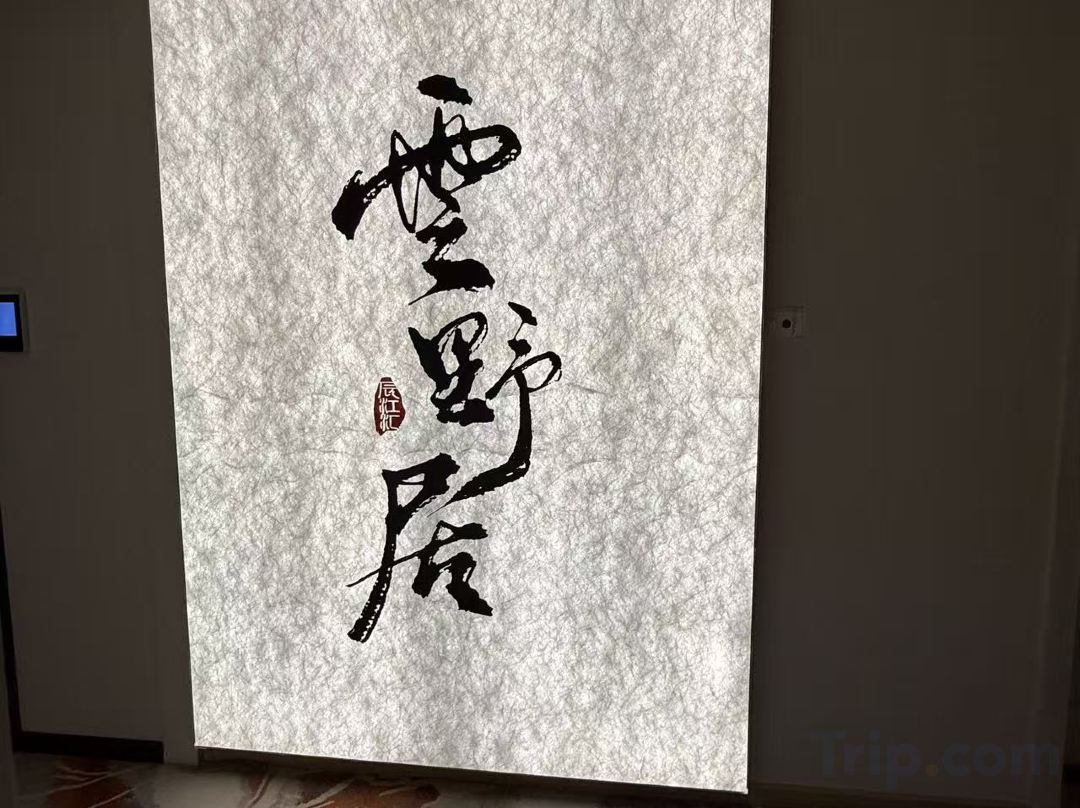 雲野居
辰江汇
Trip.com